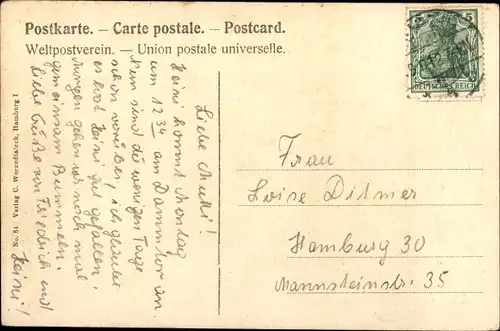 Postkarte. — Carte postale. — Postcard.
Weltpostverein. — Union postale universelle.
5
DEUTSCHES REICH
No. 84 Verlag C. Worzedialeck, Hamburg I
Liebe Mutti!
Heini kommt Montag
um 12 34 am Dammtor an.
Nun sind die wenigen Tage
schon vorüber, ich glaube
es hat Heini gut gefallen.
Morgen gehen wir noch mal
gemeinsam Bummeln.
Liebe Grüße von Friedrich und
Heini!
Frau
Loise Ditmer
Hamburg 30
Mannsteinstr. 35